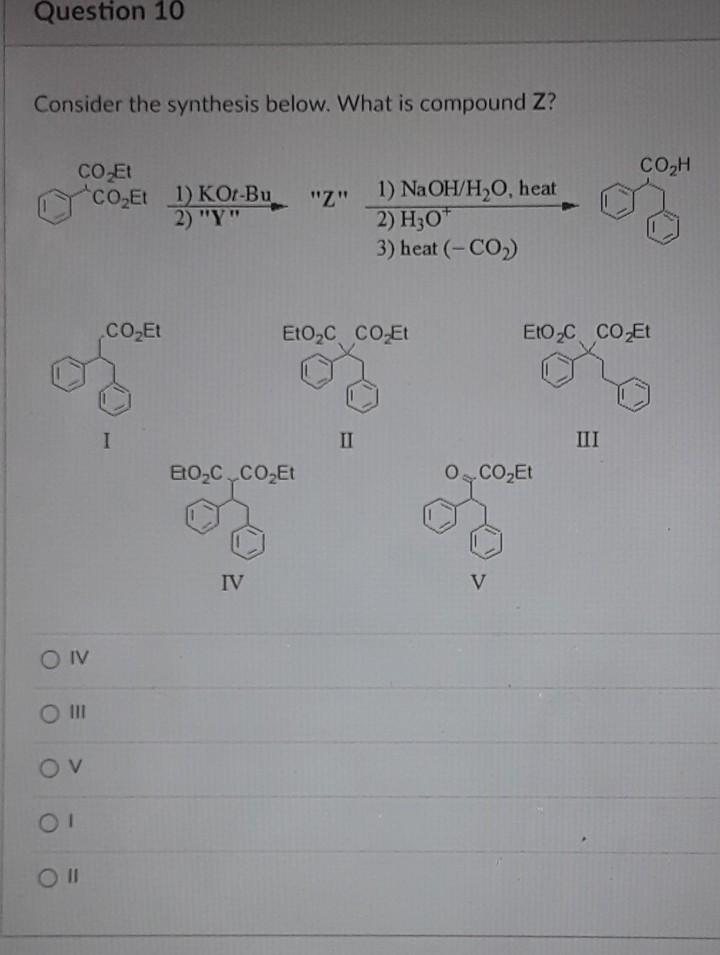 Question 10
Consider the synthesis below. What is compound Z?
CO₂Et
CO₂Et
1) KOt-Bu
2) "Y"
"Z"
1) NaOH/H₂O, heat
2) H₃O⁺
3) heat (−CO₂)
CO₂H
CO₂Et
I
EtO₂C CO₂Et
II
EtO₂C CO₂Et
III
EtO₂C CO₂Et
IV
O CO₂Et
V
IV
III
V
I
II